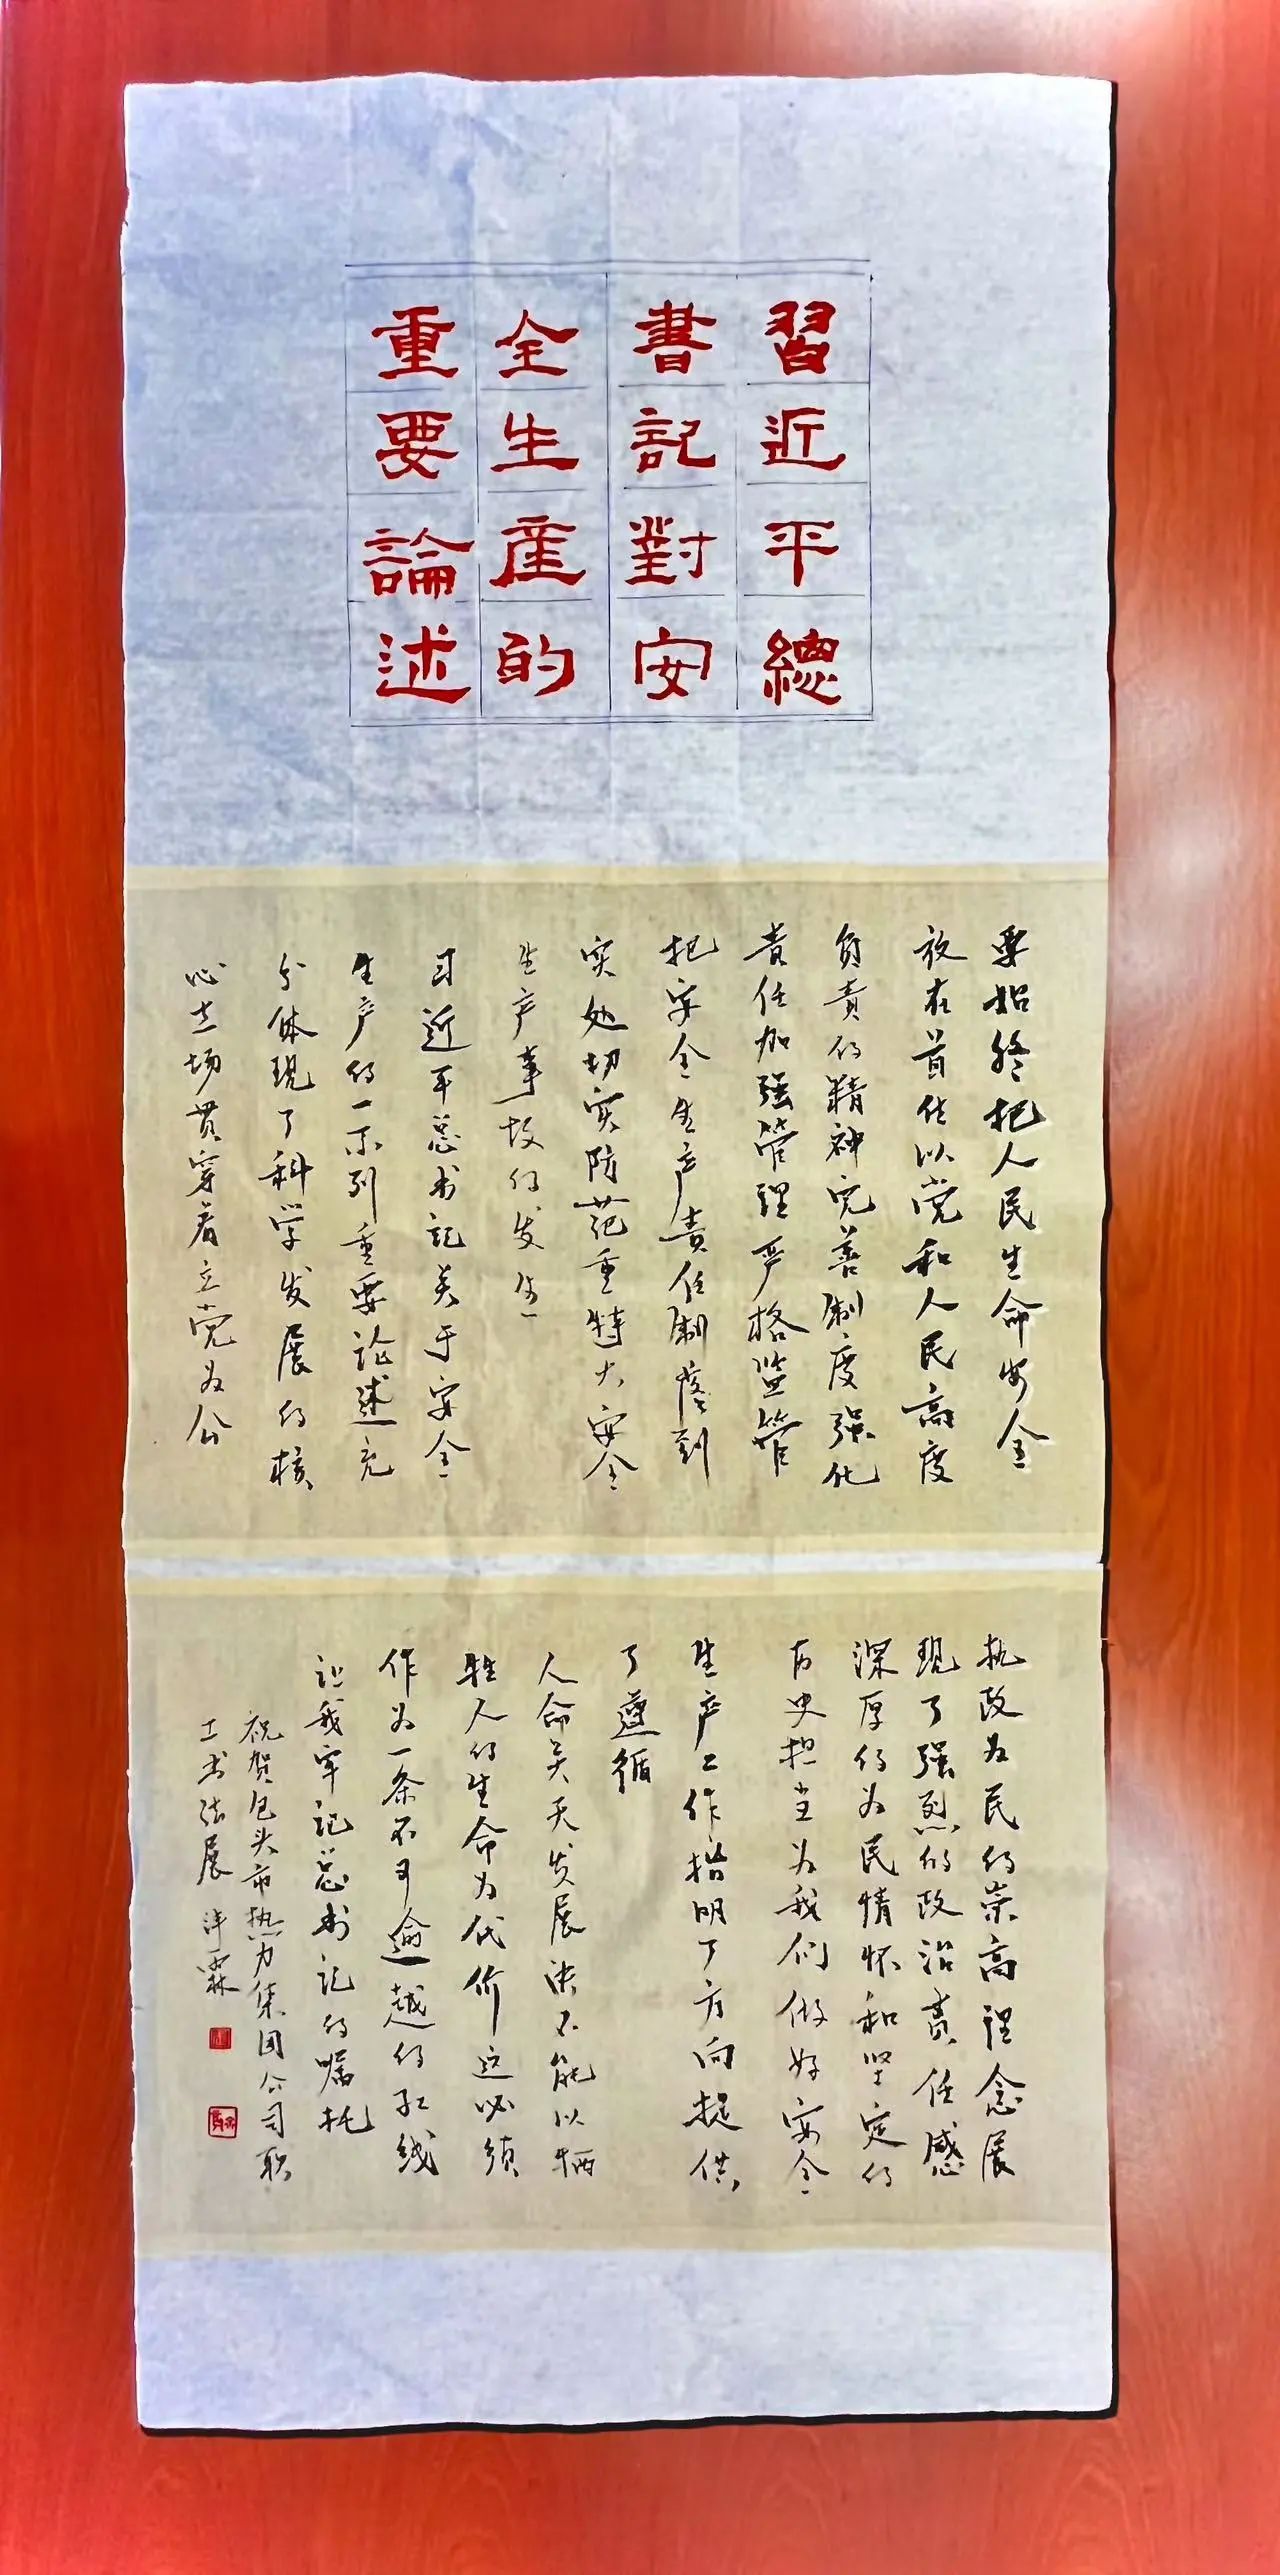 習近平總
書記對安
全生產的
重要論述
要始终把人民生命安全
放在首位以党和人民高度
负责的精神完善制度强化
责任加强管理严格监管
把安全生产责任制落到
实处切实防范重特大安全
生产事故的发生
习近平总书记关于安全
生产的一系列重要论述充
分体现了科学发展的核
心立场贯穿着立党为公
执政为民的崇高理念展
现了强烈的政治责任感
深厚的为民情怀和坚定的
历史担当为我们做好安全
生产工作指明了方向提供
了遵循
人命关天发展决不能以牺
牲人的生命为代价这必须
作为一条不可逾越的红线
让我牢记总书记的嘱托
祝贺包头市热力集团公司职
工书法展 霖